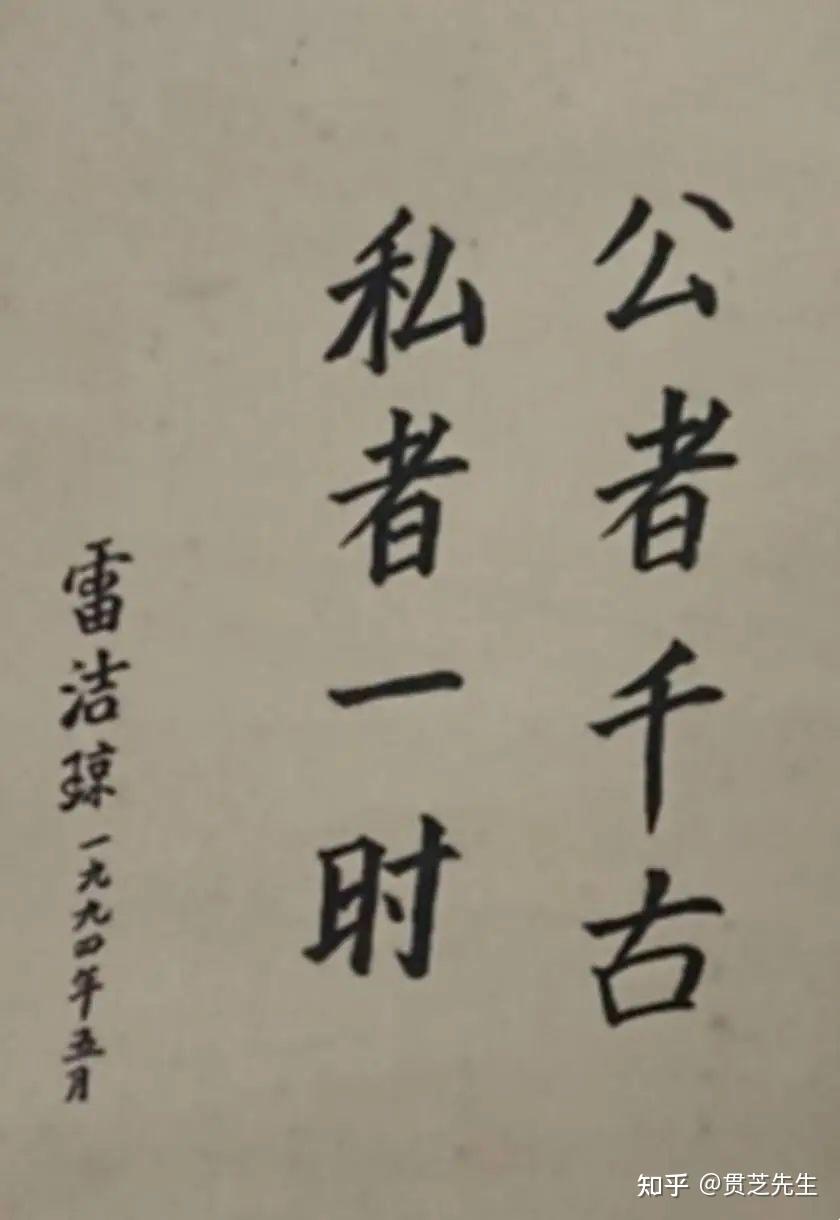 公者千古
私者一时
雷洁琼 一九九四年五月
知乎 @贯芝先生